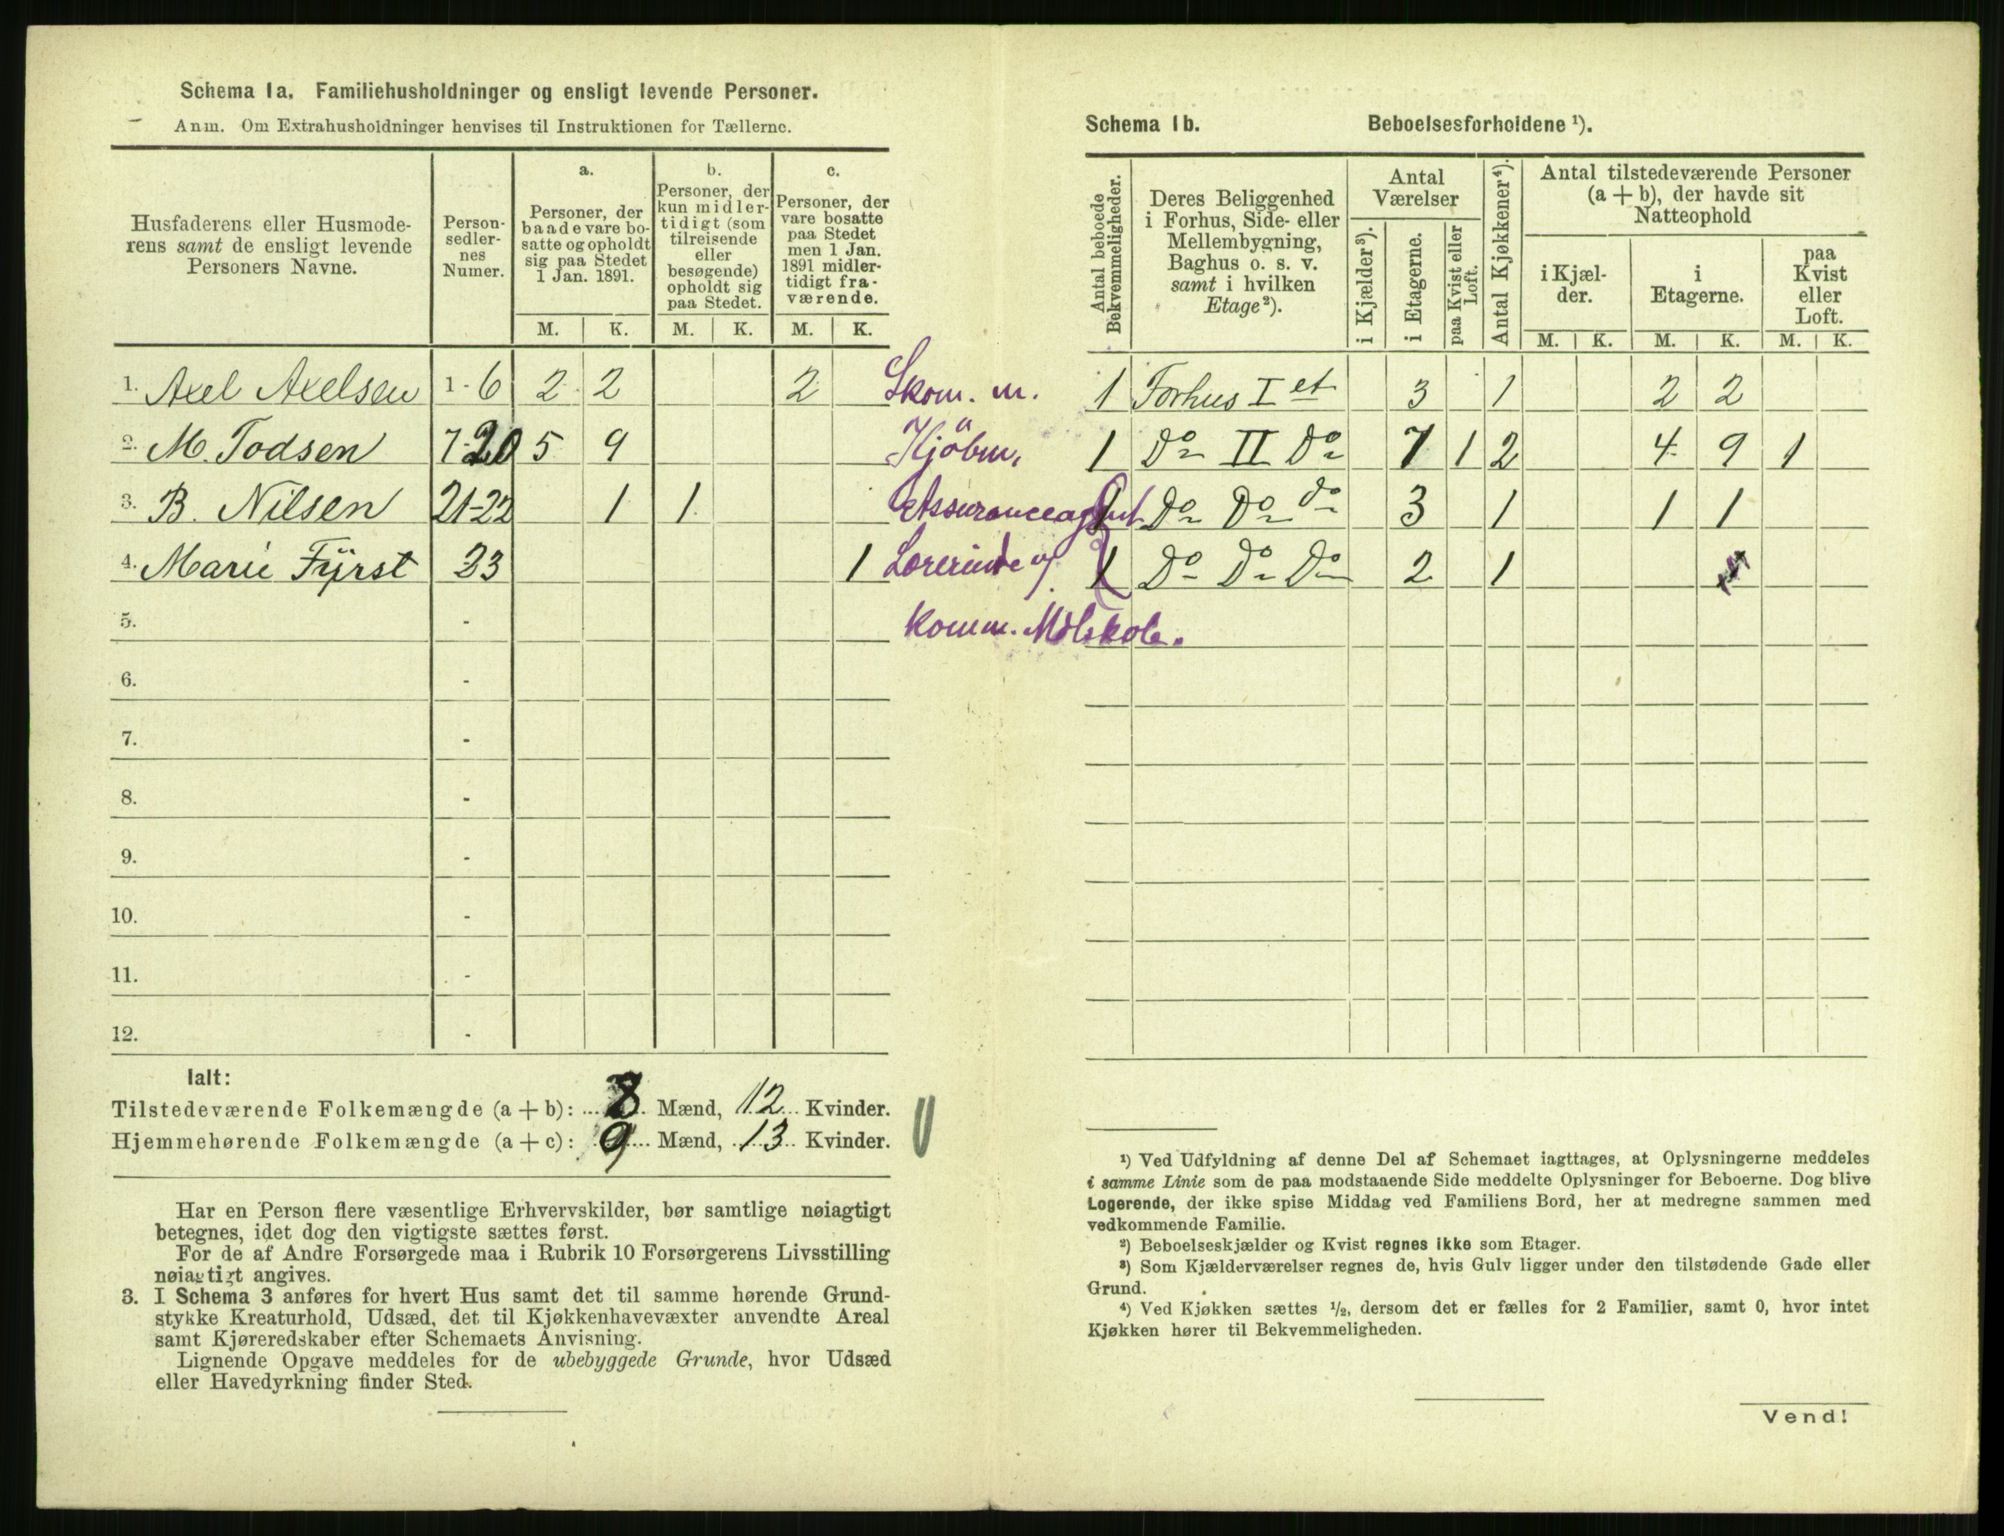 Schema 1a. Familiehusholdninger og ensligt levende Personer.
Anm. Om Extrahusholdninger henvises til Instruktionen for Tællerne.
Husfaderens eller Husmoderens samt de ensligt levende Personers Navne.
Personsedlernes Numer.
a. Personer, der baade vare bosatte og opholdt sig paa Stedet 1 Jan. 1891.
b. Personer, der kun midlertidigt (som tilreisende eller besøgende) opholdt sig paa Stedet.
c. Personer, der vare bosatte paa Stedet men 1 Jan. 1891 midlertidigt fraværende.
M. K. M. K. M. K.
1. Axel Axelsen 1-6 2 2 2 Skom. m.
2. M. Todsen 7-20 5 9 Kjöbm.
3. B. Nilsen 21-22 1 1 Assuranceagent
4. Marie Fÿrst 23 1 Lærerinde v/
5. - komm. Mdlskole.
6. -
7. -
8. -
9. -
10. -
11. -
12. -
Ialt:
Tilstedeværende Folkemængde (a + b): 8 Mænd, 12 Kvinder.
Hjemmehørende Folkemængde (a + c): 9 Mænd, 13 Kvinder.
Har en Person flere væsentlige Erhvervskilder, bør samtlige nøiagtigt
betegnes, idet dog den vigtigste sættes først.
For de af Andre Forsørgede maa i Rubrik 10 Forsørgerens Livsstilling
nøiagtigt angives.
3. I Schema 3 anføres for hvert Hus samt det til samme hørende Grund-
stykke Kreaturhold, Udsæd, det til Kjøkkenhavevæxter anvendte Areal
samt Kjøreredskaber efter Schemaets Anvisning.
Lignende Opgave meddeles for de ubebyggede Grunde, hvor Udsæd
eller Havedyrkning finder Sted.
Schema 1b. Beboelsesforholdene ¹).
Antal beboede Bekvemmeligheder.
Deres Beliggenhed i Forhus, Side- eller Mellembygning, Baghus o. s. v. samt i hvilken Etage²).
Antal Værelser
i Kjælder³).
i Etagerne.
paa Kvist eller Loft.
Antal Kjøkkener⁴).
Antal tilstedeværende Personer (a + b), der havde sit Natteophold
i Kjælder.
i Etagerne.
paa Kvist eller Loft.
M. K. M. K. M. K.
1 Forhus I et 3 1 2 2
1 Do II Do 7 1 2 4 9 1
1 Do Do do 3 1 1 1
1 Do Do Do 2 1
¹) Ved Udfyldning af denne Del af Schemaet iagttages, at Oplysningerne meddeles
i samme Linie som de paa modstaaende Side meddelte Oplysninger for Beboerne. Dog blive
Logerende, der ikke spise Middag ved Familiens Bord, her at medregne sammen med
vedkommende Familie.
²) Beboelseskjælder og Kvist regnes ikke som Etager.
³) Som Kjælderværelser regnes de, hvis Gulv ligger under den tilstødende Gade eller
Grund.
⁴) Ved Kjøkken sættes ½, dersom det er fælles for 2 Familier, samt 0, hvor intet
Kjøkken hører til Bekvemmeligheden.
Vend!